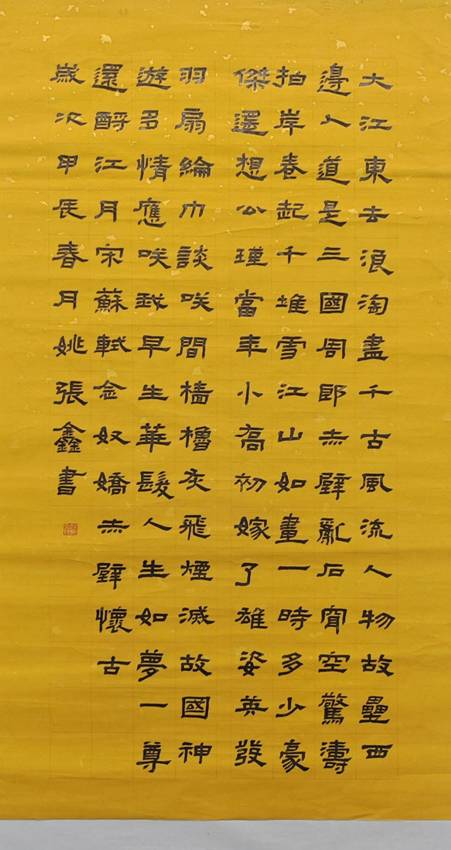 大江東去浪淘盡千古風流人物故壘西
邊人道是三國周郎赤壁亂石空驚濤
拍岸卷起千堆雪江山如畫一時多少豪
傑遙想公瑾當年小喬初嫁了雄姿英發
羽扇綸巾談咲間檣櫓灰飛煙滅故國神
遊多情應咲我早生華髮人生如夢一尊
還酹江月宋蘇軾念奴嬌赤壁懷古
歲次甲辰春月姚張鑫書